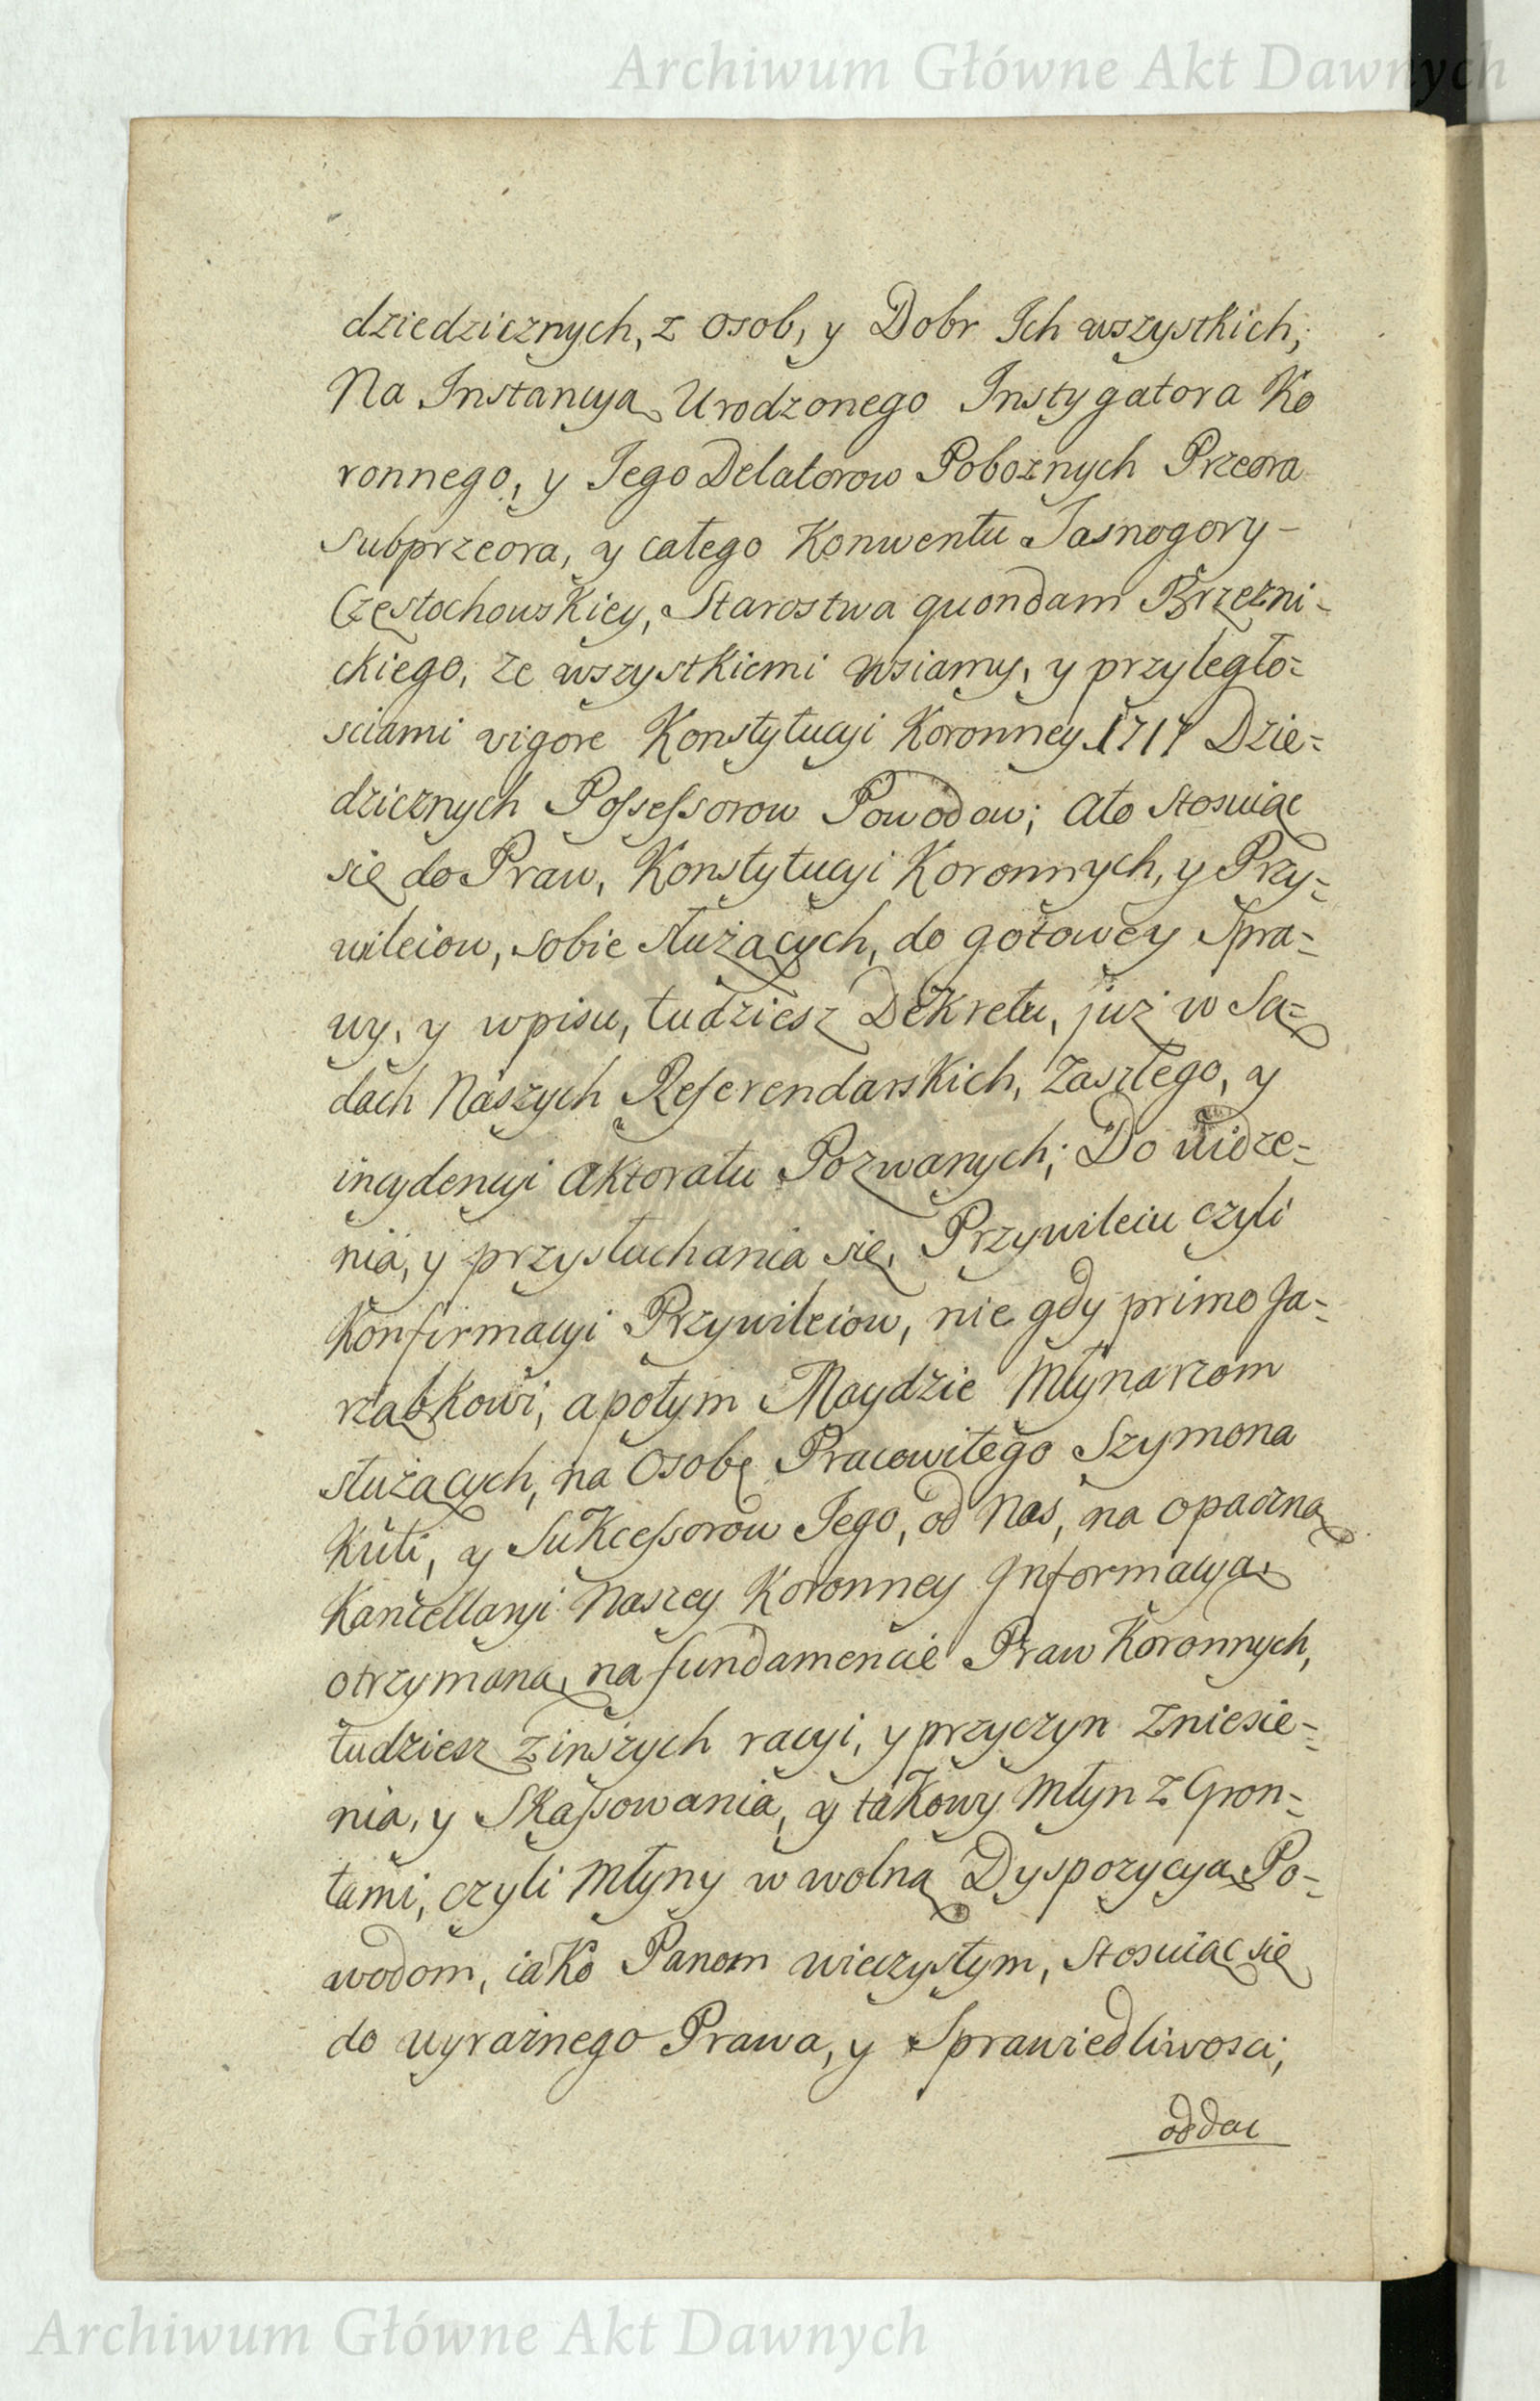 Archiwum Główne Akt Dawnych
dziedzicznych, z osob, y Dobr Ich wszystkich;
Na Instancyą Urodzonego Instygatora Ko
ronnego, y Jego Delatorow Pobożnych Przeora
Subprzeora, y całego Konwentu Jasnogory-
Częstochowskiey, Starostwa quondam Brzezni-
ckiego, ze wszystkiemi wsiamy, y przyległo=
sciami vigore Konstytucyi Koronney 1717 Dzie=
dzicznych Possessorow Powodow; Ato stosuiąc
się do Praw, Konstytucyi Koronnych, y Przy=
wileiow, sobie służących, do gotowey Spra=
wy, y wpisu, tudziesz Dekretu, już w Są=
dach Naszych Referendarskich, Zaszłego, y
incydencyi Aktoratu Pozwanych; Do widze=
nia, y przysłuchania się, Przywileiu czyli
Konfirmacyi Przywileiow, nie gdy primo Ja=
rząbkowi, apotym Maydzie Młynarzom
służących, na Osobę Pracowitego Szymona
Kuli, y Sukcessorow Jego, od Nas, na opaczną
Kancellaryi Naszey Koronney Informacyą
otrzymaną, na fundamencie Praw Koronnych,
tudziesz zinszych racyi, y przyczyn Zniesie=
nia, y Skassowania, y takowy Młyn z Gron=
tami, czyli Młyny w wolną Dyspozycyą Po=
wodom, iako Panom wieczystym, stosuiąc się
do wyraznego Prawa, y Sprawiedliwosci;
oddac
Archiwum Główne Akt Dawnych